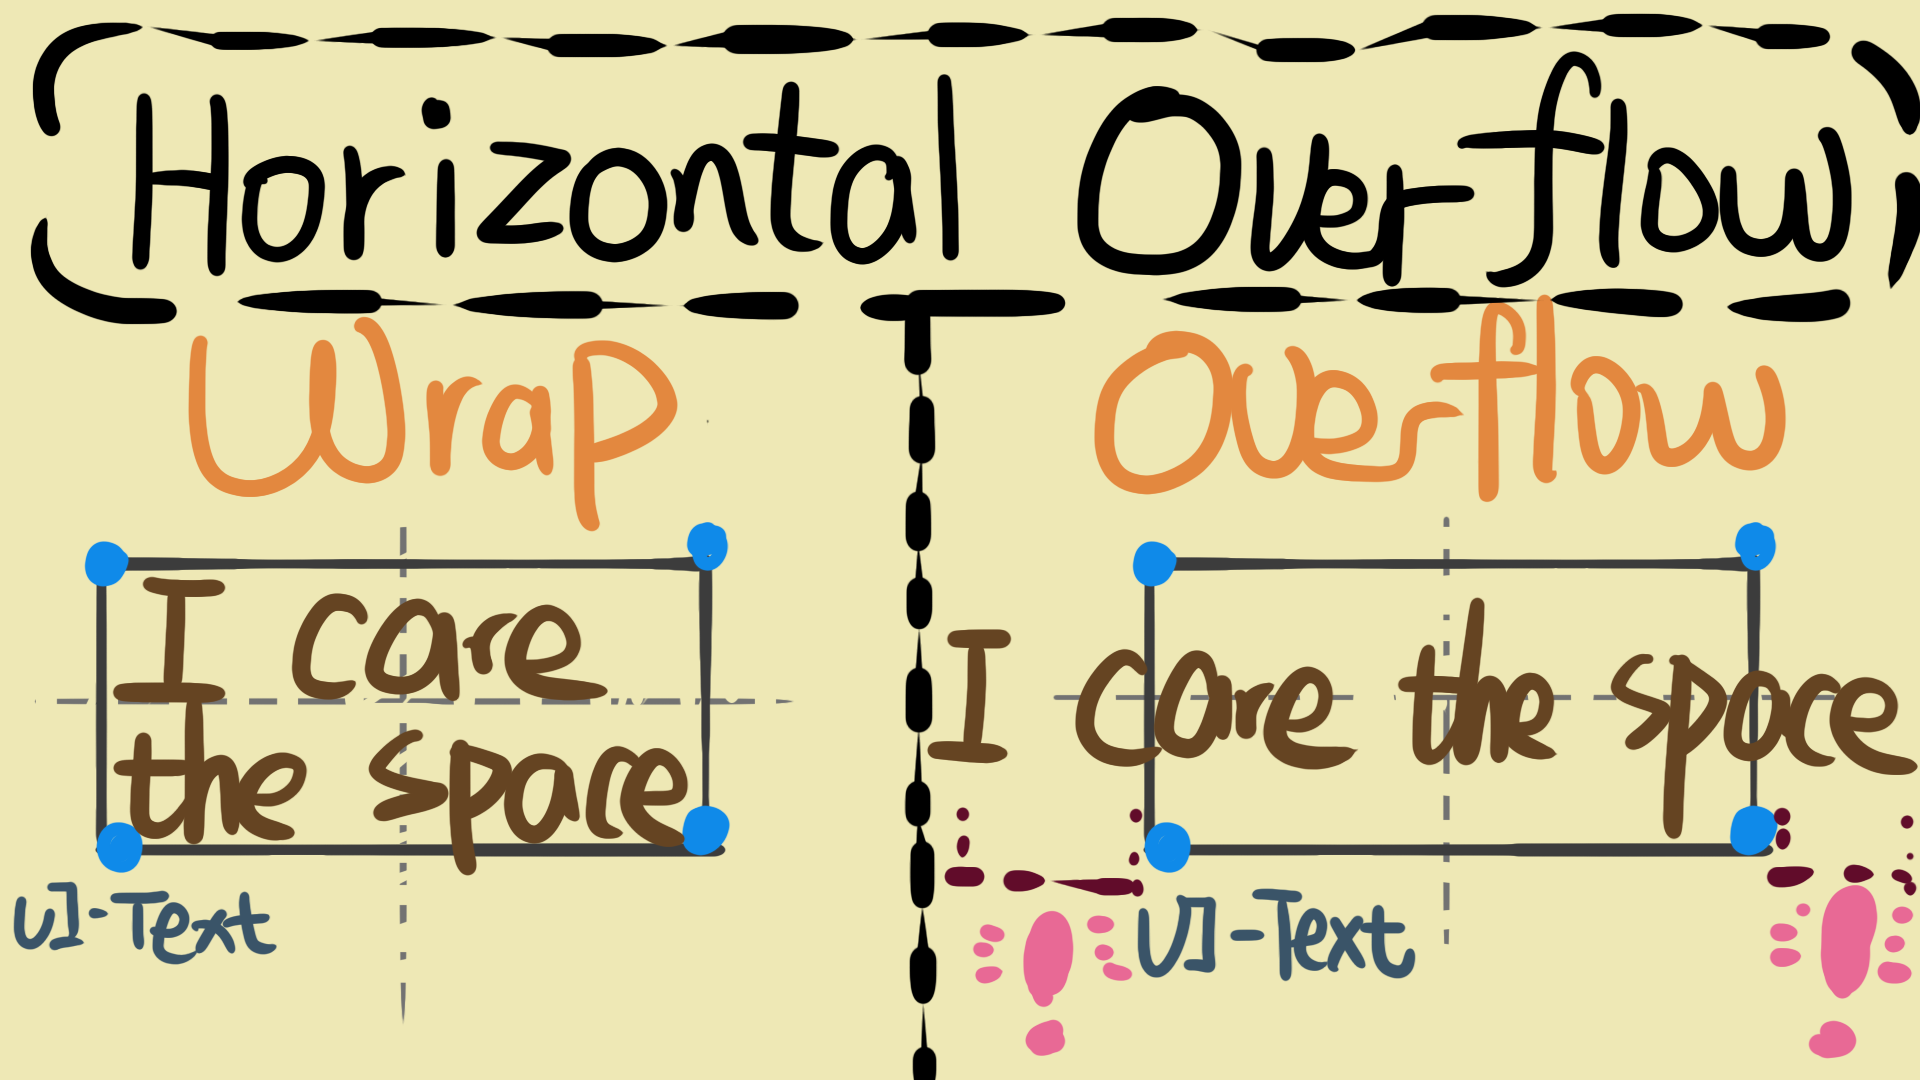 Horizontal Overflow
Wrap
I care
the space
UI-Text
Overflow
I care the space
UI-Text